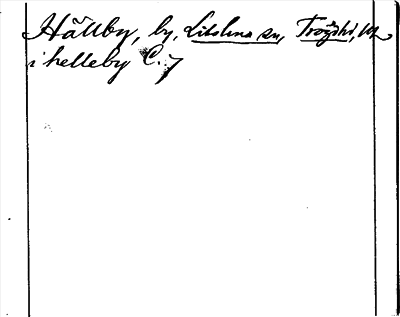 Hällby, by, Litslena sn, Trögds hd, Upl.
i helleby C. 7